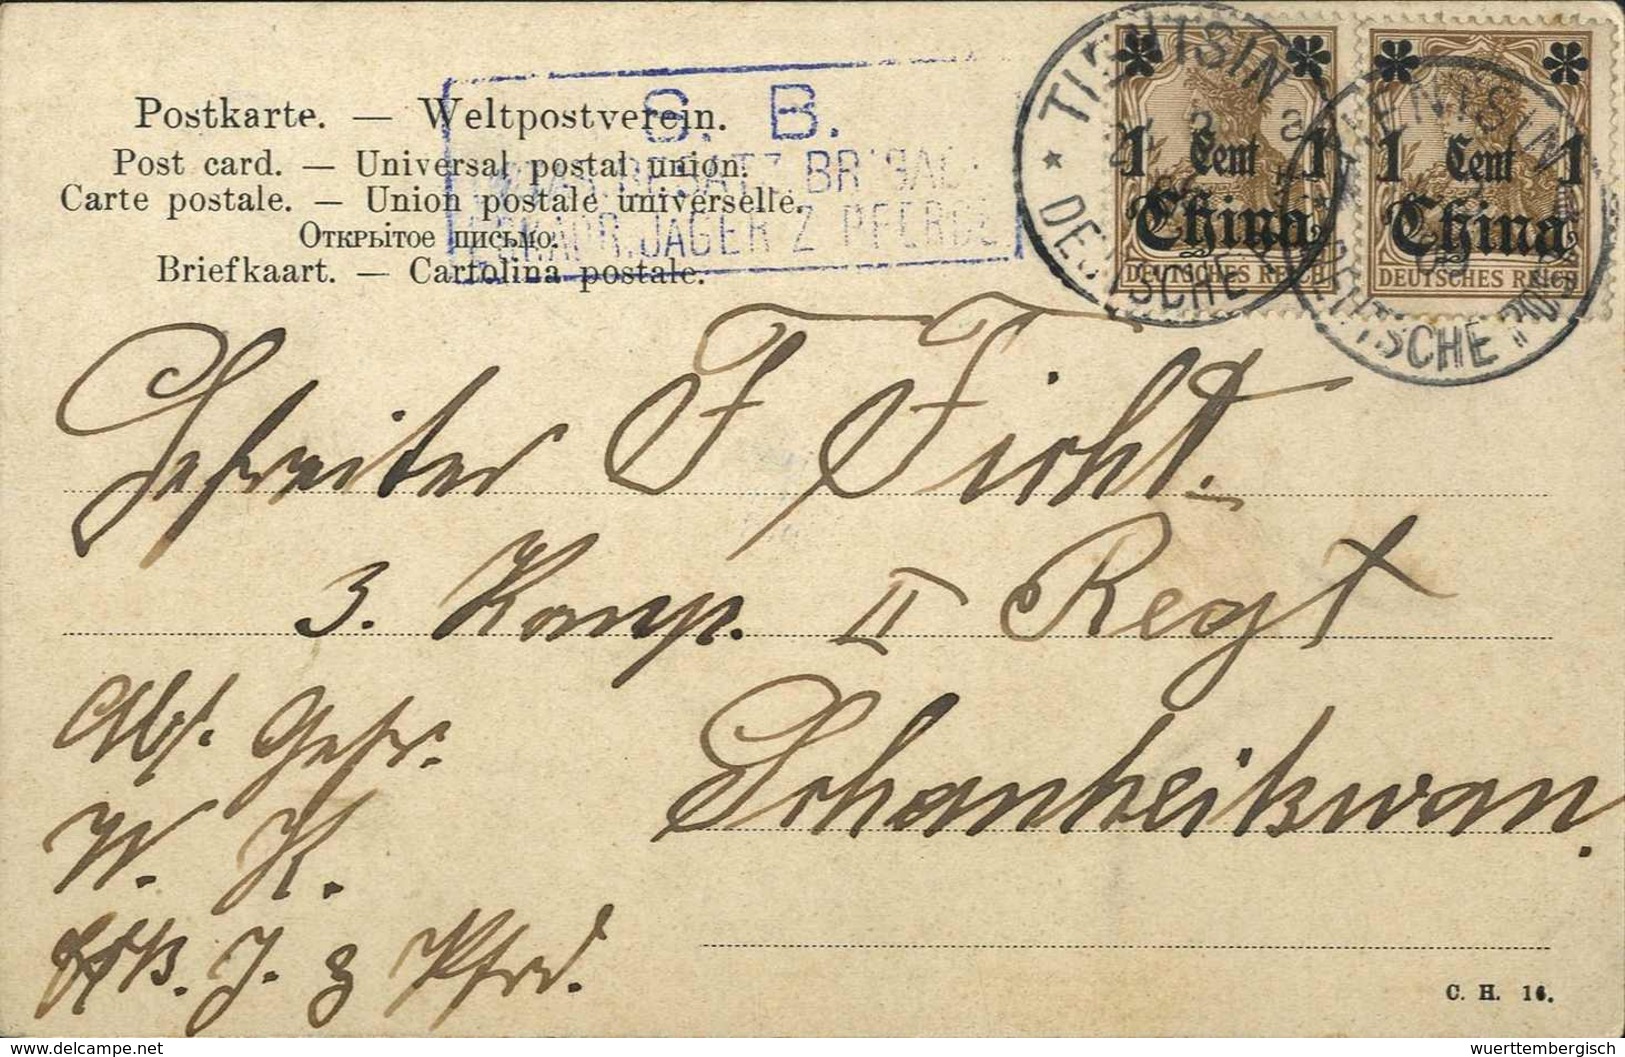 Postkarte. — Weltpostverein.
Post card. — Universal postal union.
Carte postale. — Union postale universelle.
Открытое письмо.
Briefkaart. — Cartolina postale.
S. B.
BRIGADE
JÄGER Z. PFERDE
TIENTSIN
DEUTSCHE
1 Cent 1
China
DEUTSCHES REICH
TIENTSIN
DEUTSCHE POST
1 Cent 1
China
DEUTSCHES REICH
Gefreiter F Ficht.
3. Komp. II Regt
Schanheikwan.
Abs. Gefr.
W. K.
J. z Pferd.
C. H. 16.
delcampe.net
wuerttembergisch